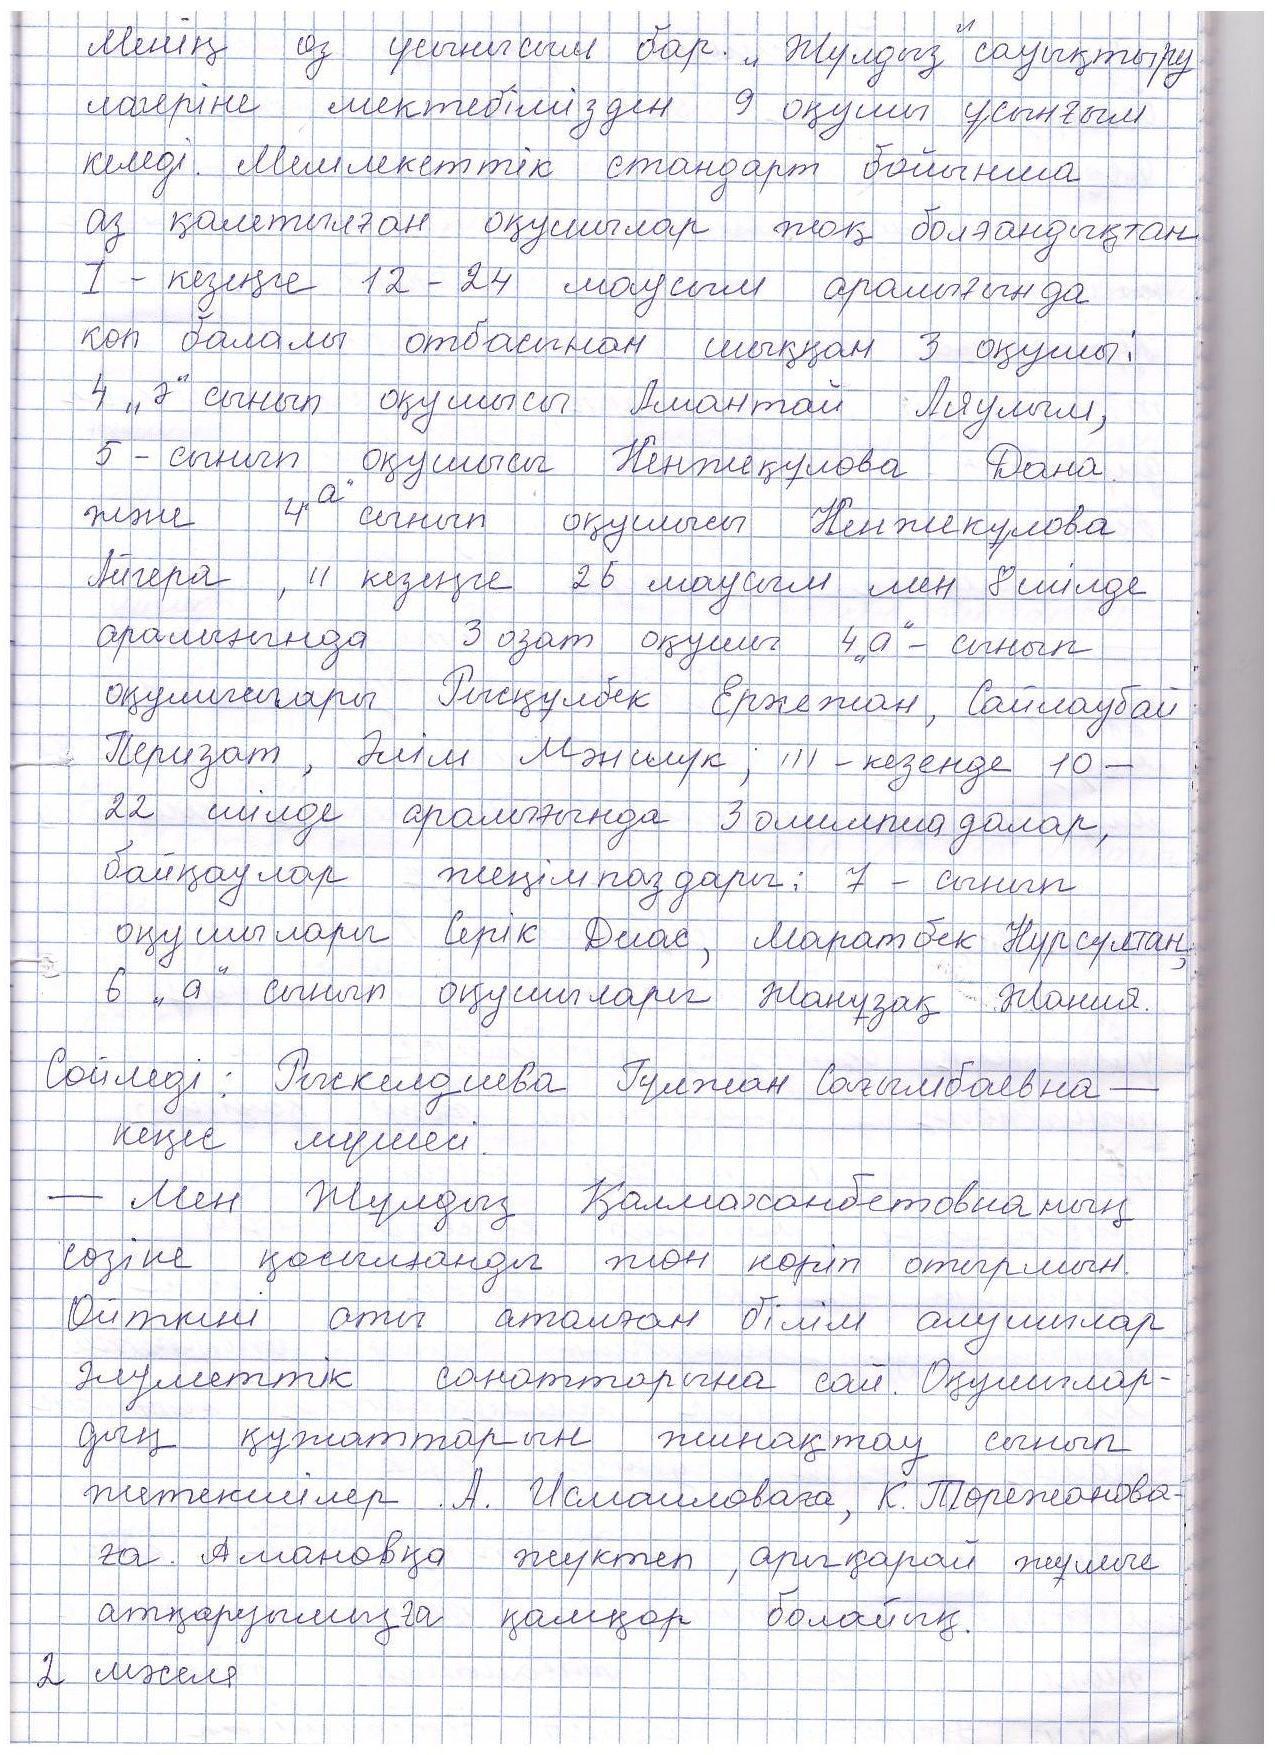 Менің өз ұсынысым бар. „Жұлдыз" сауықтыру
лагеріне мектебімізден 9 оқушы ұсынғым
келеді. Мемлекеттік стандарт бойынша
аз қамтылған оқушылар жоқ болғандықтан
I - кезеңге 12 - 24 маусым аралығында
көп балалы отбасынан шыққан 3 оқушы:
4 „ә" сынып оқушысы Амантай Аяулым,
5 - сынып оқушысы Кенжеқулова Дана
және 4 "а" сынып оқушысы Кенжекулова
Айгера, II кезеңге 26 маусым мен 8 шілде
аралығында 3 озат оқушы 4 „а" - сынып
оқушылары Рысқулбек Ержежан, Сайлаубай
Перизат, Әлім Мәнсук; III - кезенде 10 -
22 шілде аралығында 3 олимпиадалар,
байқаулар жеңімпаздары: 7 - сынып
оқушылары Серік Диас, Маратбек Нурсултан,
6 „а" сынып оқушылары Жанұзақ Жания.
Сөйледі: Рыскелдиева Гүлжан Сағымбаевна —
кеңес мүшесі.
— Мен Жұлдыз Қалмаханбетовнаның
сөзіне қосылғанды жөн көріп отырмын.
Өйткені аты аталған білім алушылар
әлуметтік санаттарына сай. Оқушылар-
дың құжаттарын жинақтау сынып
жетекшілер А. Исмаиловаға, К. Төрежанова-
ға. Амановқа жүктеп, арықарай жұмыс
атқаруымызға қамқор болайық.
2 мәселе